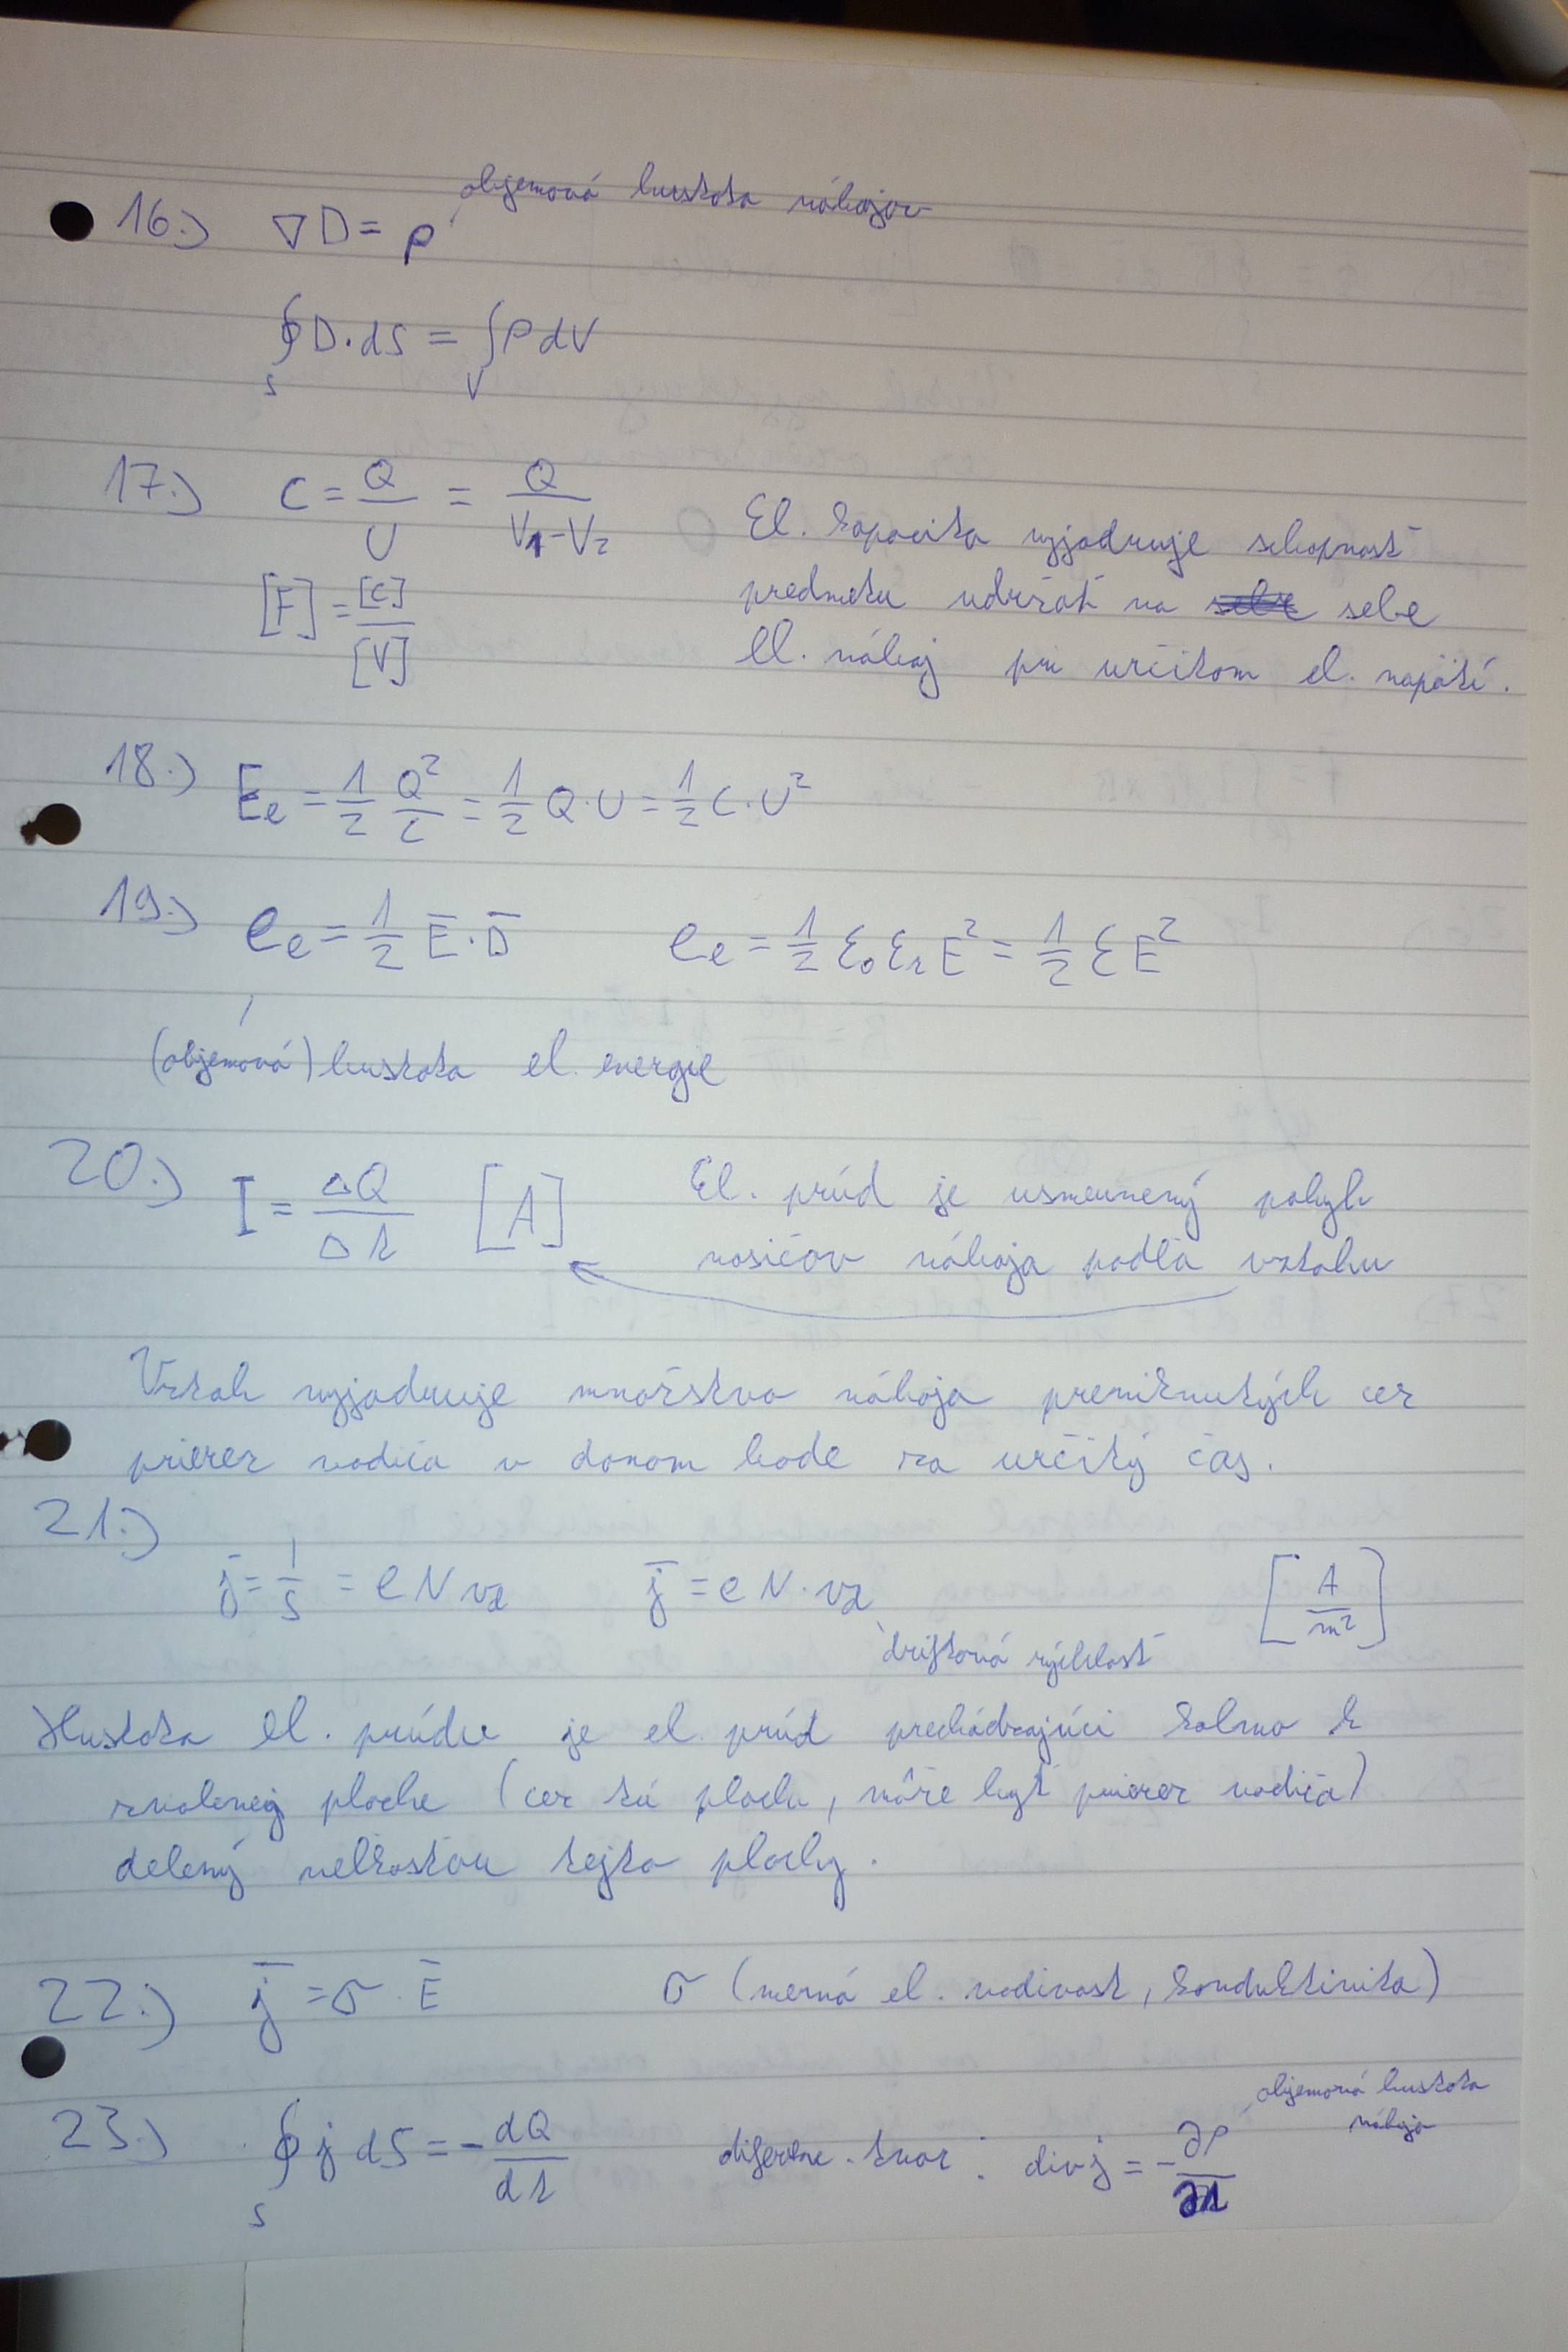 objemová hustota nábojov
16.) ∇D = ρ
∮_S D·dS = ∫_V ρ dV
17.) C = Q/U = Q/(V₁-V₂)
[F] = [C]/[V]
El. kapacita vyjadruje schopnosť
predmetu udržať na sebe
el. náboj pri určitom el. napätí.
18.) E_e = 1/2 Q²/C = 1/2 Q·U = 1/2 C·U²
19.) e_e = 1/2 E̅·D̅ e_e = 1/2 ε₀ε_r E² = 1/2 εE²
(objemová) hustota el. energie
20.) I = ΔQ/Δt [A] El. prúd je usmernený pohyb
nosičov náboja podľa vzťahu
Vzťah vyjadruje množstvo náboja preniknutých cez
prierez vodiča v danom bode za určitý čas.
21.)
j̅ = I/S = e N v_d j̅ = e N·v_d [A/m²]
driftová rýchlosť
Hustota el. prúdu je el. prúd prechádzajúci kolmo k
zvolenej ploche (cez tú plochu, môže byť prierez vodiča)
delený veľkosťou tejto plochy.
22.) j̅ = σ·E̅ σ (merná el. vodivosť, konduktivita)
objemová hustota
náboja
23.) ∮_S j dS = -dQ/dt tvar: div j = -∂ρ/∂t